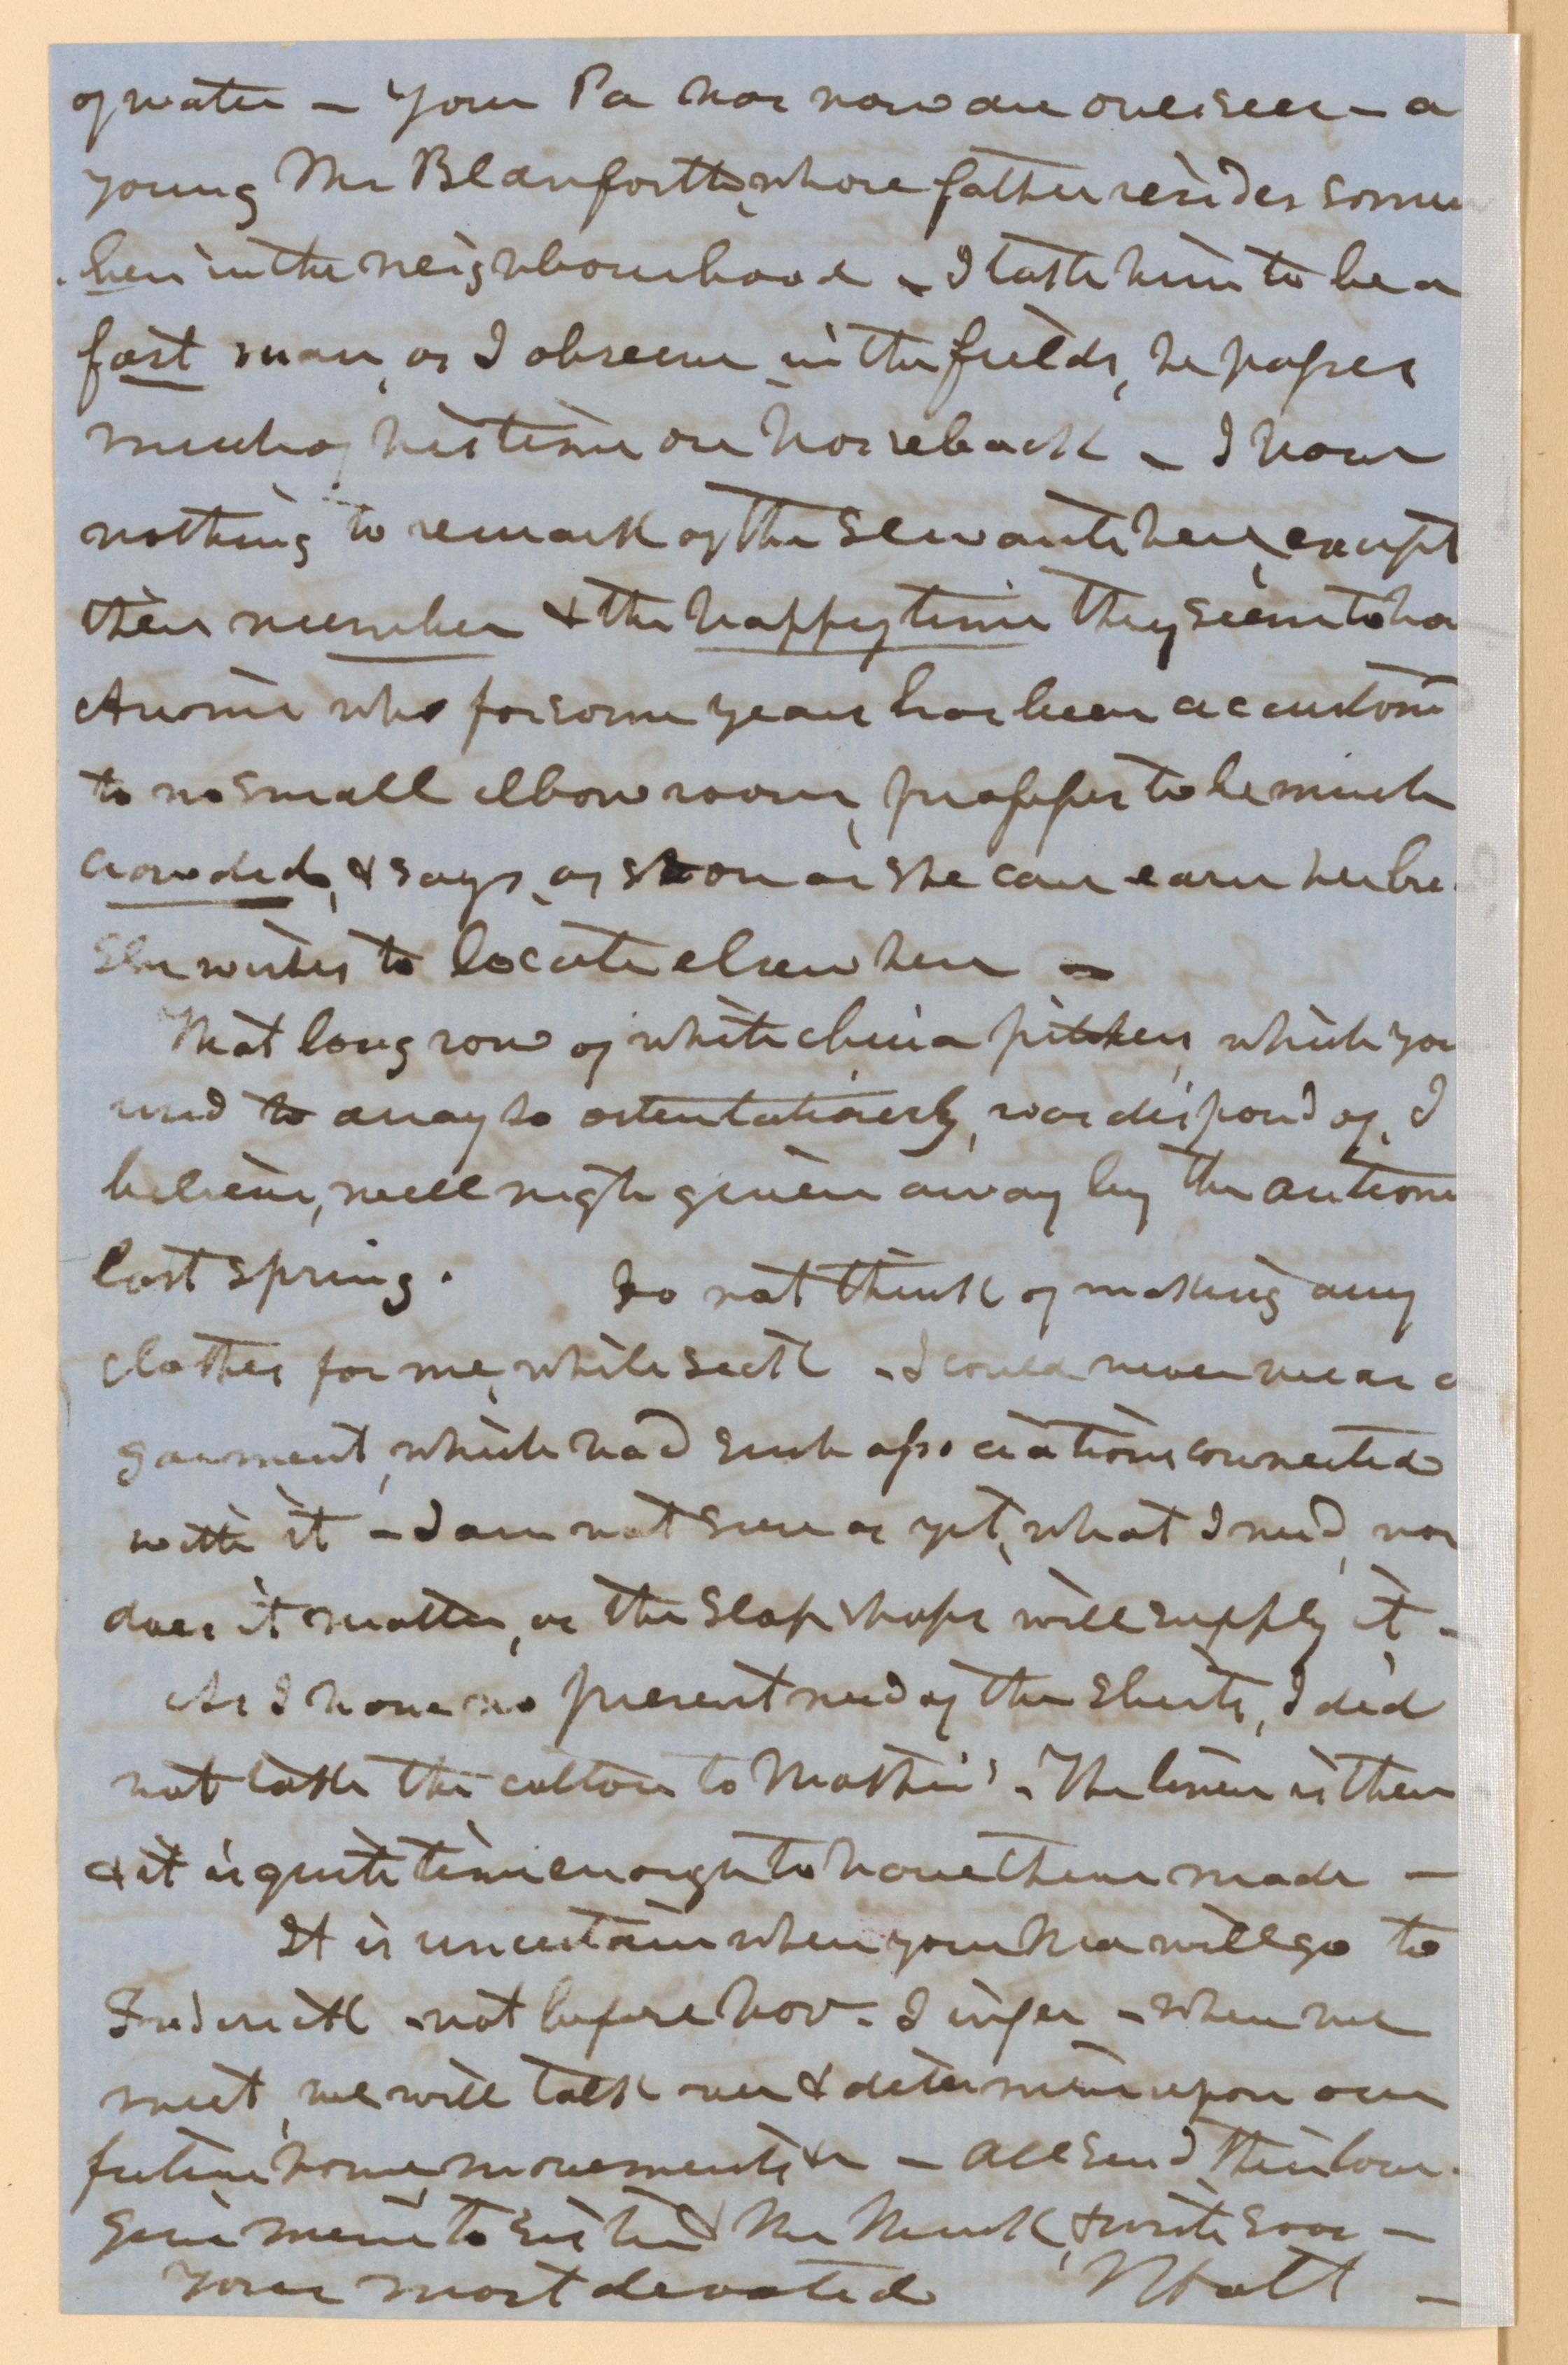 of water – Your Pa has now an overseer – a
young Mr Blanforth, whose father resides somew
here in the neighbourhood – I take him to be a
fast man, as I observe in the fields, he passes
much of his time on horseback – I have
nothing to remark of the servants here, except
their number & the happy time they seem to ha
who for some years has been accustom
to no small elbow room, professes to be much
crowded, & says, as soon as she can earn her bre
she wishes to locate elsewhere –
That long row of white china pitchers, which you
used to array so ostentatiously, was dispos'd of, I
believe, well nigh given away by the auction
last spring. Do not think of making any
clothes for me, while sick – I could never wear a
garment, which had such associations connected
with it – I am not sure as yet, what I need, nor
does it matter, as the slop shops will supply it –
As I have no present need of the shirts, I did
not take the cotton to – The linen is there
& it is quite time enough to have them made –
It is uncertain when your Ma will go to
Frederick – not before Nov – I infer – when we
meet, we will talk over & determine upon our
future home, movements &c – All send their love.
Give mine to Sister & Mr & write soon –
Your most devoted Holt –